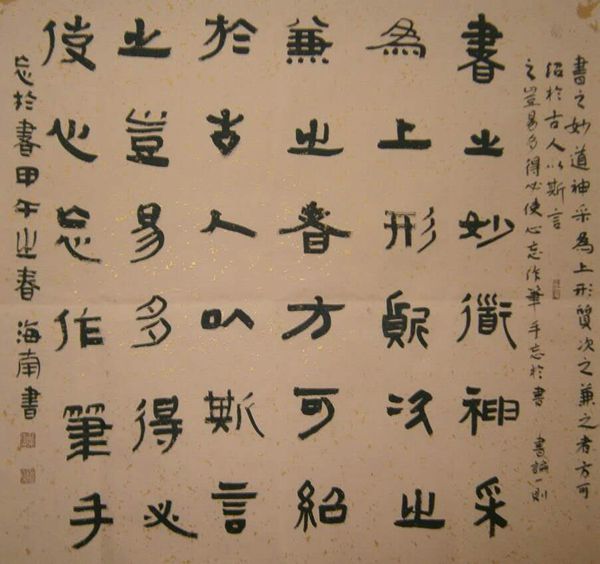 書之妙道神采為上形質次之兼之者方可
紹於古人以斯言
之豈易多得必使心忘作筆手忘於書 書論一則
書之妙道神采
為上形質次之
兼之者方可紹
於古人以斯言
之豈易多得必
使心忘作筆手
忘於書甲午之春海南書